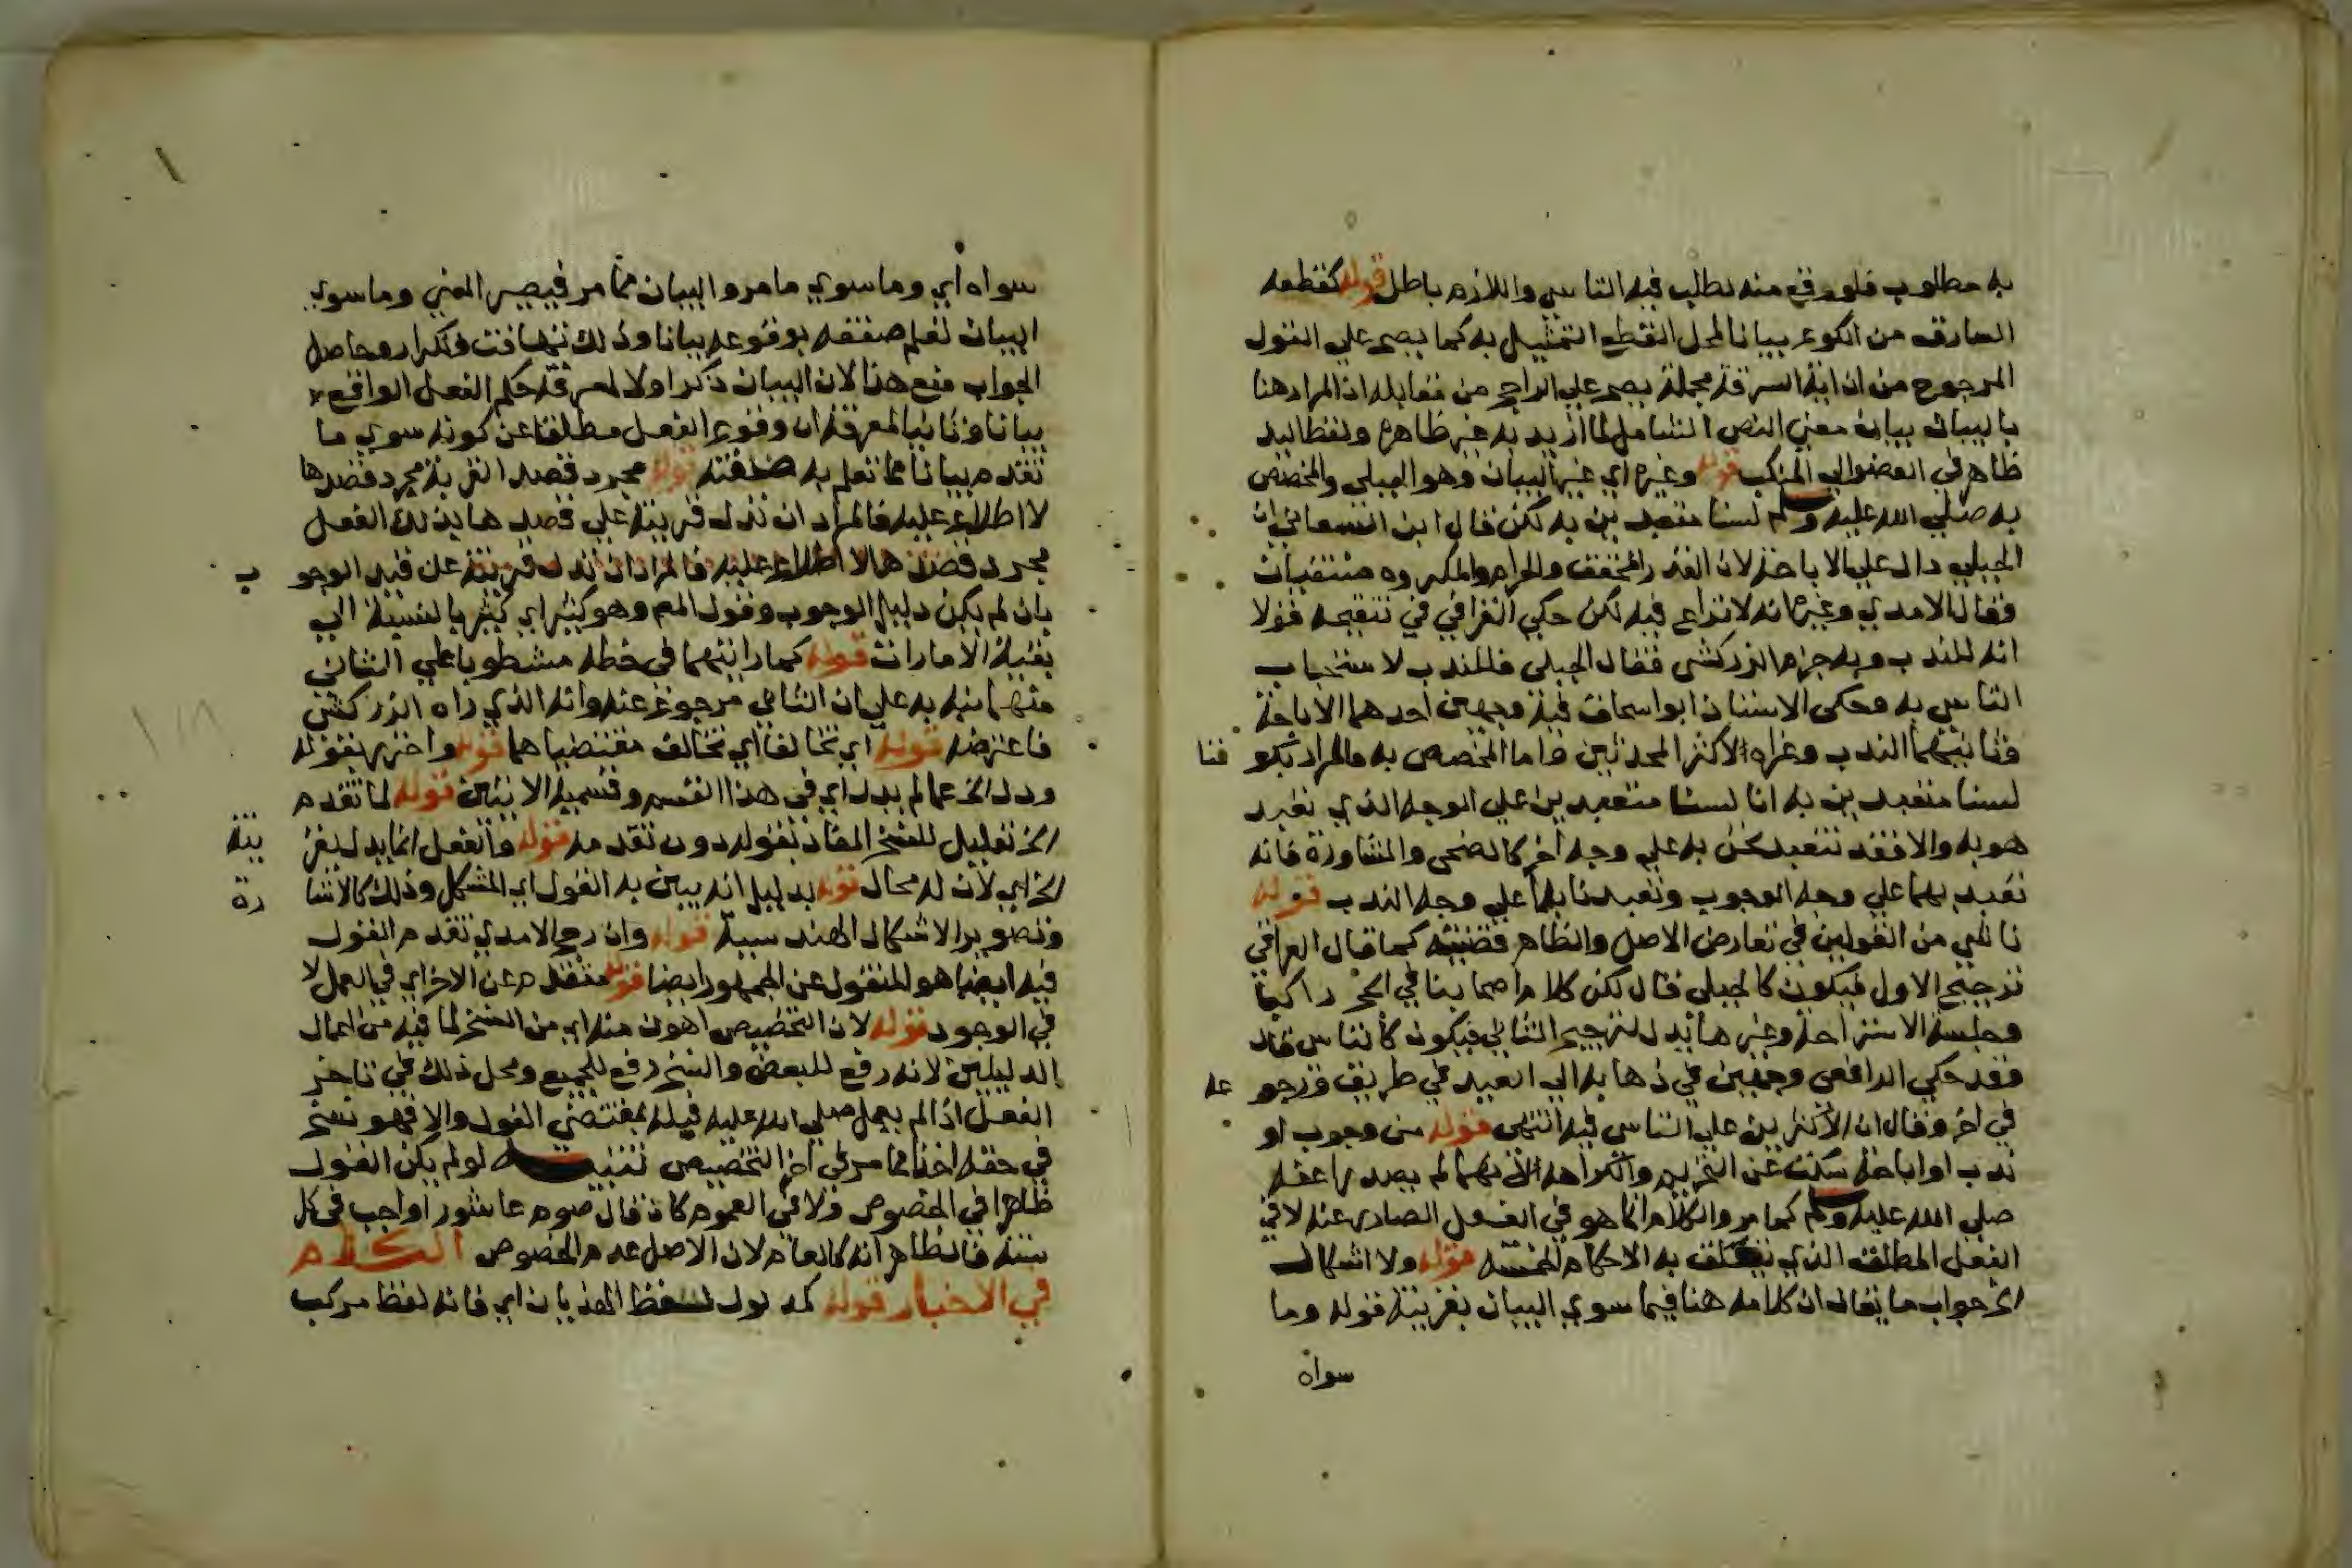 به مطلوب فلو وقع منه لطلب فيه التاسي واللازم باطل قوله كقطعه
السارق من الكوع بيانا لمحل القطع التمثيل به كما يصح علي القول
المرجوح من ان اية السرقة مجملة يصح علي الراجح من مقابله اذ المراد هنا
بالبيان بيان معني النص الشامل لما اريد به غير ظاهره ولفظ اليد
ظاهر في العضو الي المنكب قوله وغيره اي غير البيان وهو الجبلي والمخصص
به صلي الله عليه وسلم لسنا متعبدين به لكن قال ابن السمعاني ان
الجبلي دال علي الاباحة لان القدر المخفف والحرام والمكروه منتفيات
فقال الامدي وغيره انه لا نزاع فيه لكن حكي القرافي في تنقيحه قولا
انه للندب وبه جزم الزركشي فقال الجبلي فالمندب لاستحباب
التاسي به وحكي الاستاذ ابو اسحاق فيه وجهين احدهما الاباحة
وثانيهما الندب وعزاه لاكثر المحدثين واما المخصص به والمراد بكو ننا
لسنا متعبدين به انا لسنا متعبدين علي الوجه الذي تعبد
هو به والا فقد نتعبد نحن به علي وجه اخر كالضحي والمشاورة فانه
تعبد بهما علي وجه الوجوب وتعبدنا بهما علي وجه الندب قوله
ناشي من القولين في تعارض الاصل والظاهر قضيته كما قال العراقي
ترجيح الاول فيكون كالجبلي قال لكن كلام اصحابنا في الحج راكبا
وجلسة الاستراحة وغيرها يدل لترجيح الثاني فيكون كالتاسي قال
وقد حكي الرافعي وجهين في ذهابه الي العيد في طريق ورجو عه
في اخر وقال ان الاكثرين علي التاسي فيه انتهي قوله من وجوب او
ندب او اباحة سكت عن التحريم والكراهة لانهما لم يصدرا عنه
صلي الله عليه وسلم كما مر والكلام انما هو في الفعل الصادر عنه لا في
الفعل المطلق الذي تتعلق به الاحكام الخمسة قوله ولا اشكال
الخ جواب ما يقال ان كلامه هنا فيما سوي البيان بقرينة قوله وما
سواه
سواه اي وما سوي ما مر والبيان مما مر فيصير المعني وما سوي
البيان تعلم صفته بوقوعه بيانا وذلك تهافت وتكرار وحاصل
الجواب منع هذا لان البيان ذكر اولا لمعرفة حكم الفعل الواقع
بيانا وثانيا لمعرفة ان وقوع الفعل مطلقا عن كونه سوي ما
تقدم بيانا مما تعلم به صفته قوله مجرد قصد القربة مجرد قصدها
لا اطلاع عليه فالمراد ان تدل قرينة علي قصدها بذلك الفعل
مجرد قصدها لا اطلاع عليه فالمراد ان تدل قرينة عن قيد الوجو ب
بان لم يكن دليل الوجوب وقول المص وهو كثير اي كثير بالنسبة الي
بقية الامارات قوله كما رايتهما في خطه مشطوبا علي الثاني
منهما نبه به علي ان الثاني مرجوع عنه وانه الذي راه الزركشي
فاعترضه قوله اي تخالفا اي تخالف مقتضياهما قوله واحترز بقوله
ودل الخ عما لم يدل اي في هذا القسم وقسميه الاتيين قوله لما تقدم
الخ تعليل للنسخ المفاد بقوله دون تقدمه قوله والفعل انما يدل بقر ينة
الخ اي لان له محال قوله بدليل انه يبين به القول اي المشكل وذلك كالاشا رة
وتصوير الاشكال الهندسية قوله وان رجح الامدي تقدم القول
فيه ايضا هو المنقول عن الجمهور ايضا قوله متقدم عن الاخر اي في العمل لا
في الوجود قوله لان التخصيص اهون منه اي من النسخ لما فيه من اعمال
الدليلين لانه رفع للبعض والنسخ رفع للجميع ومحل ذلك في تاخر
الفعل اذا لم يعمل صلي الله عليه قبله بمقتضي القول والا فهو نسخ
في حقه اخذا مما مر في اخر التخصيص تنبيه لو لم يكن القول
ظاهرا في الخصوص ولا في العموم كان قال صوم عاشورا واجب في كل
سنة فالظاهر انه كالعام لان الاصل عدم الخصوص الكلام
في الاخبار قوله كمدلول لفظ الهذيان اي فانه لفظ مركب